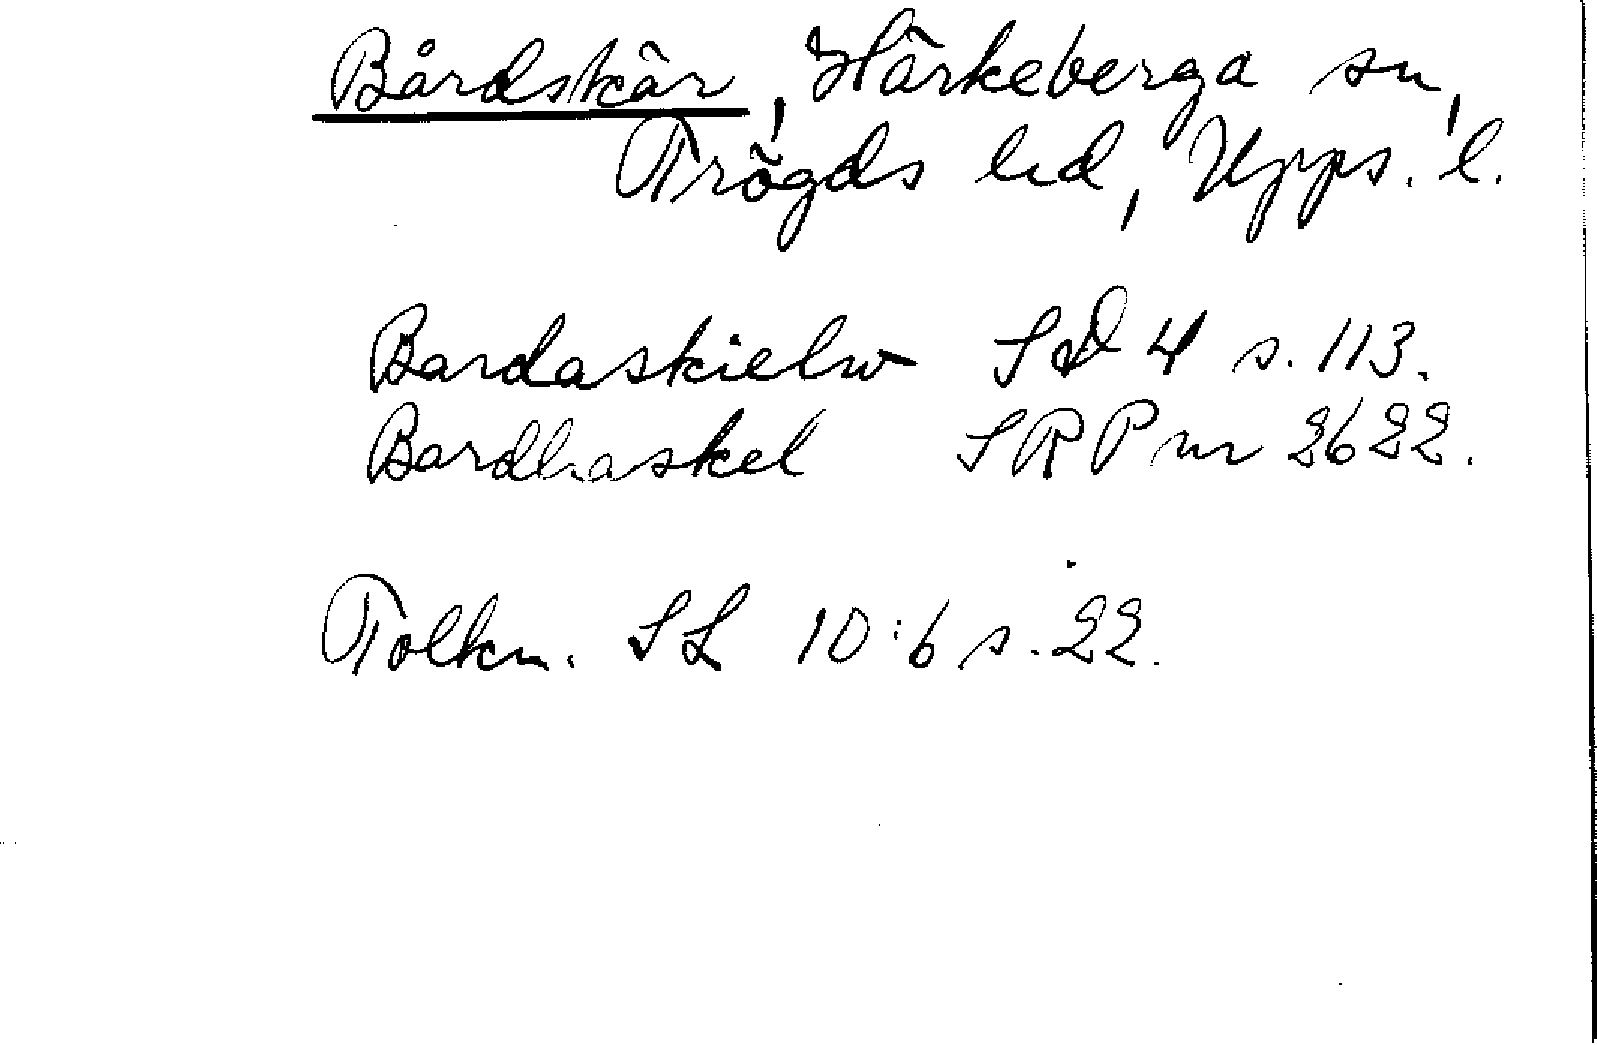 Bårdskär, Härkeberga sn,
Trögds hd, Upps. l.
Bardaskielw SD 4 s. 113.
Bardhaskel SRP nr 2622.
Tolkn. SL 10:6 s. 22.